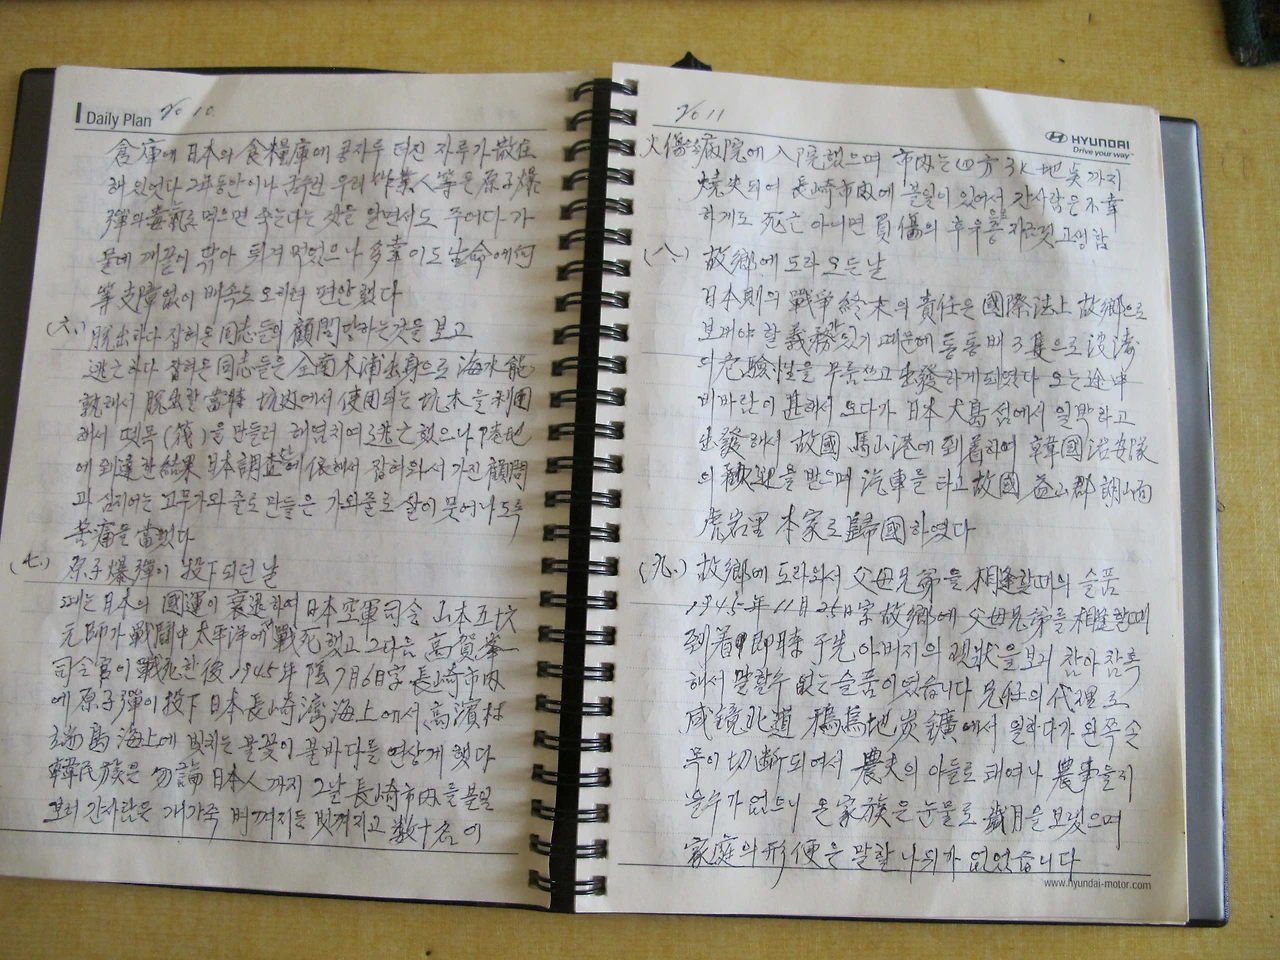 Daily Plan
No 10
倉庫에 日本의 食糧庫에 콩자루 터진 자루가 散在
해 있었다 2年동안이나 굶주린 우리 作業人等은 原子爆
彈의 毒氣로 먹으면 죽는다는 것을 알면서도 주어다가
물데 깨끝이 닦아 튀겨 먹었으나 多幸이도 生命에 何
等 支障없이 배속도 오히려 편안했다
(六.) 脫出하다 잡혀온 同志들의 顧問당하는것을 보고
逃亡하다 잡혀온 同志들은 全南木浦出身으로 海水能
熟해서 脫出할 當時 坑內에서 使用되는 坑木을 利用
해서 뗏목(筏)을 만들러 헤엄치여 逃亡했으나 陸地
에 到達한 結果 日本調査에 依해서 잡혀와서 가진 顧問
과 심지어는 고무가와 줄로 만들은 가와줄로 살이 뭇어나도록
苦痛을 當했다
(七.) 原子爆彈이 投下되던 날
그때는 日本의 國運이 衰退하여 日本空軍司令 山本五十六
元帥가 戰鬪中 太平洋에 戰死했고 그다음 高賀峯一
司令官이 戰死한 後 1945年 陰 7月6日字 長崎市內
에 原子彈이 投下 日本長崎灣海上에서 高濱村
端島 海上에 비치는 불꽃이 불바다를 연상케 했다
韓民族은 勿論 日本人까지 그날 長崎市內를 볼일
보러 간사람은 개가죽 버껴지듯 벗겨지고 數十名이
No 11
HYUNDAI
Drive your way
火傷病院에 入院했으며 市內는 四方 3K 地点까지
燒失되여 長崎市內에 볼일이 있어서 간사람은 不幸
하게도 死亡 아니면 負傷의 후유증으로 지금껏 고생함
(八.) 故鄕에 도라오든날
日本則의 戰爭終末의 責任은 國際法上 故鄕으로
보내야 할 義務가 있기 때문에 통통배 3隻으로 波濤
의 危險性을 무릅쓰고 出發하게되였다 오는途中
비바람이 甚해서 오다가 日本 大島 섬에서 일박하고
出發해서 故國 馬山港에 到着하여 韓國治安隊
의 歡迎을 받으며 汽車를 타고 故國 益山郡 朗山面
虎岩里 本家로 歸國하였다
(九.) 故鄕에 도라와서 父母兄弟을 相逢할때의 슬품
1945年 11月 25日字 故鄕에 父母兄弟를 相逢할때
到着 即時 于先 아버지의 現狀을 보러 참아 참혹
해서 말할수 없는 슬품이였습니다 兄任의 代理로
咸鏡北道 鴉烏地炭鑛에서 일하다가 왼쪽 손
목이 切斷되여서 農夫의 아들로 태여나 農事을지
을수가 없으니 온 家族은 눈물로 歲月을 보냈으며
家庭의 形便은 말할 나위가 없었습니다
www.hyundai-motor.com